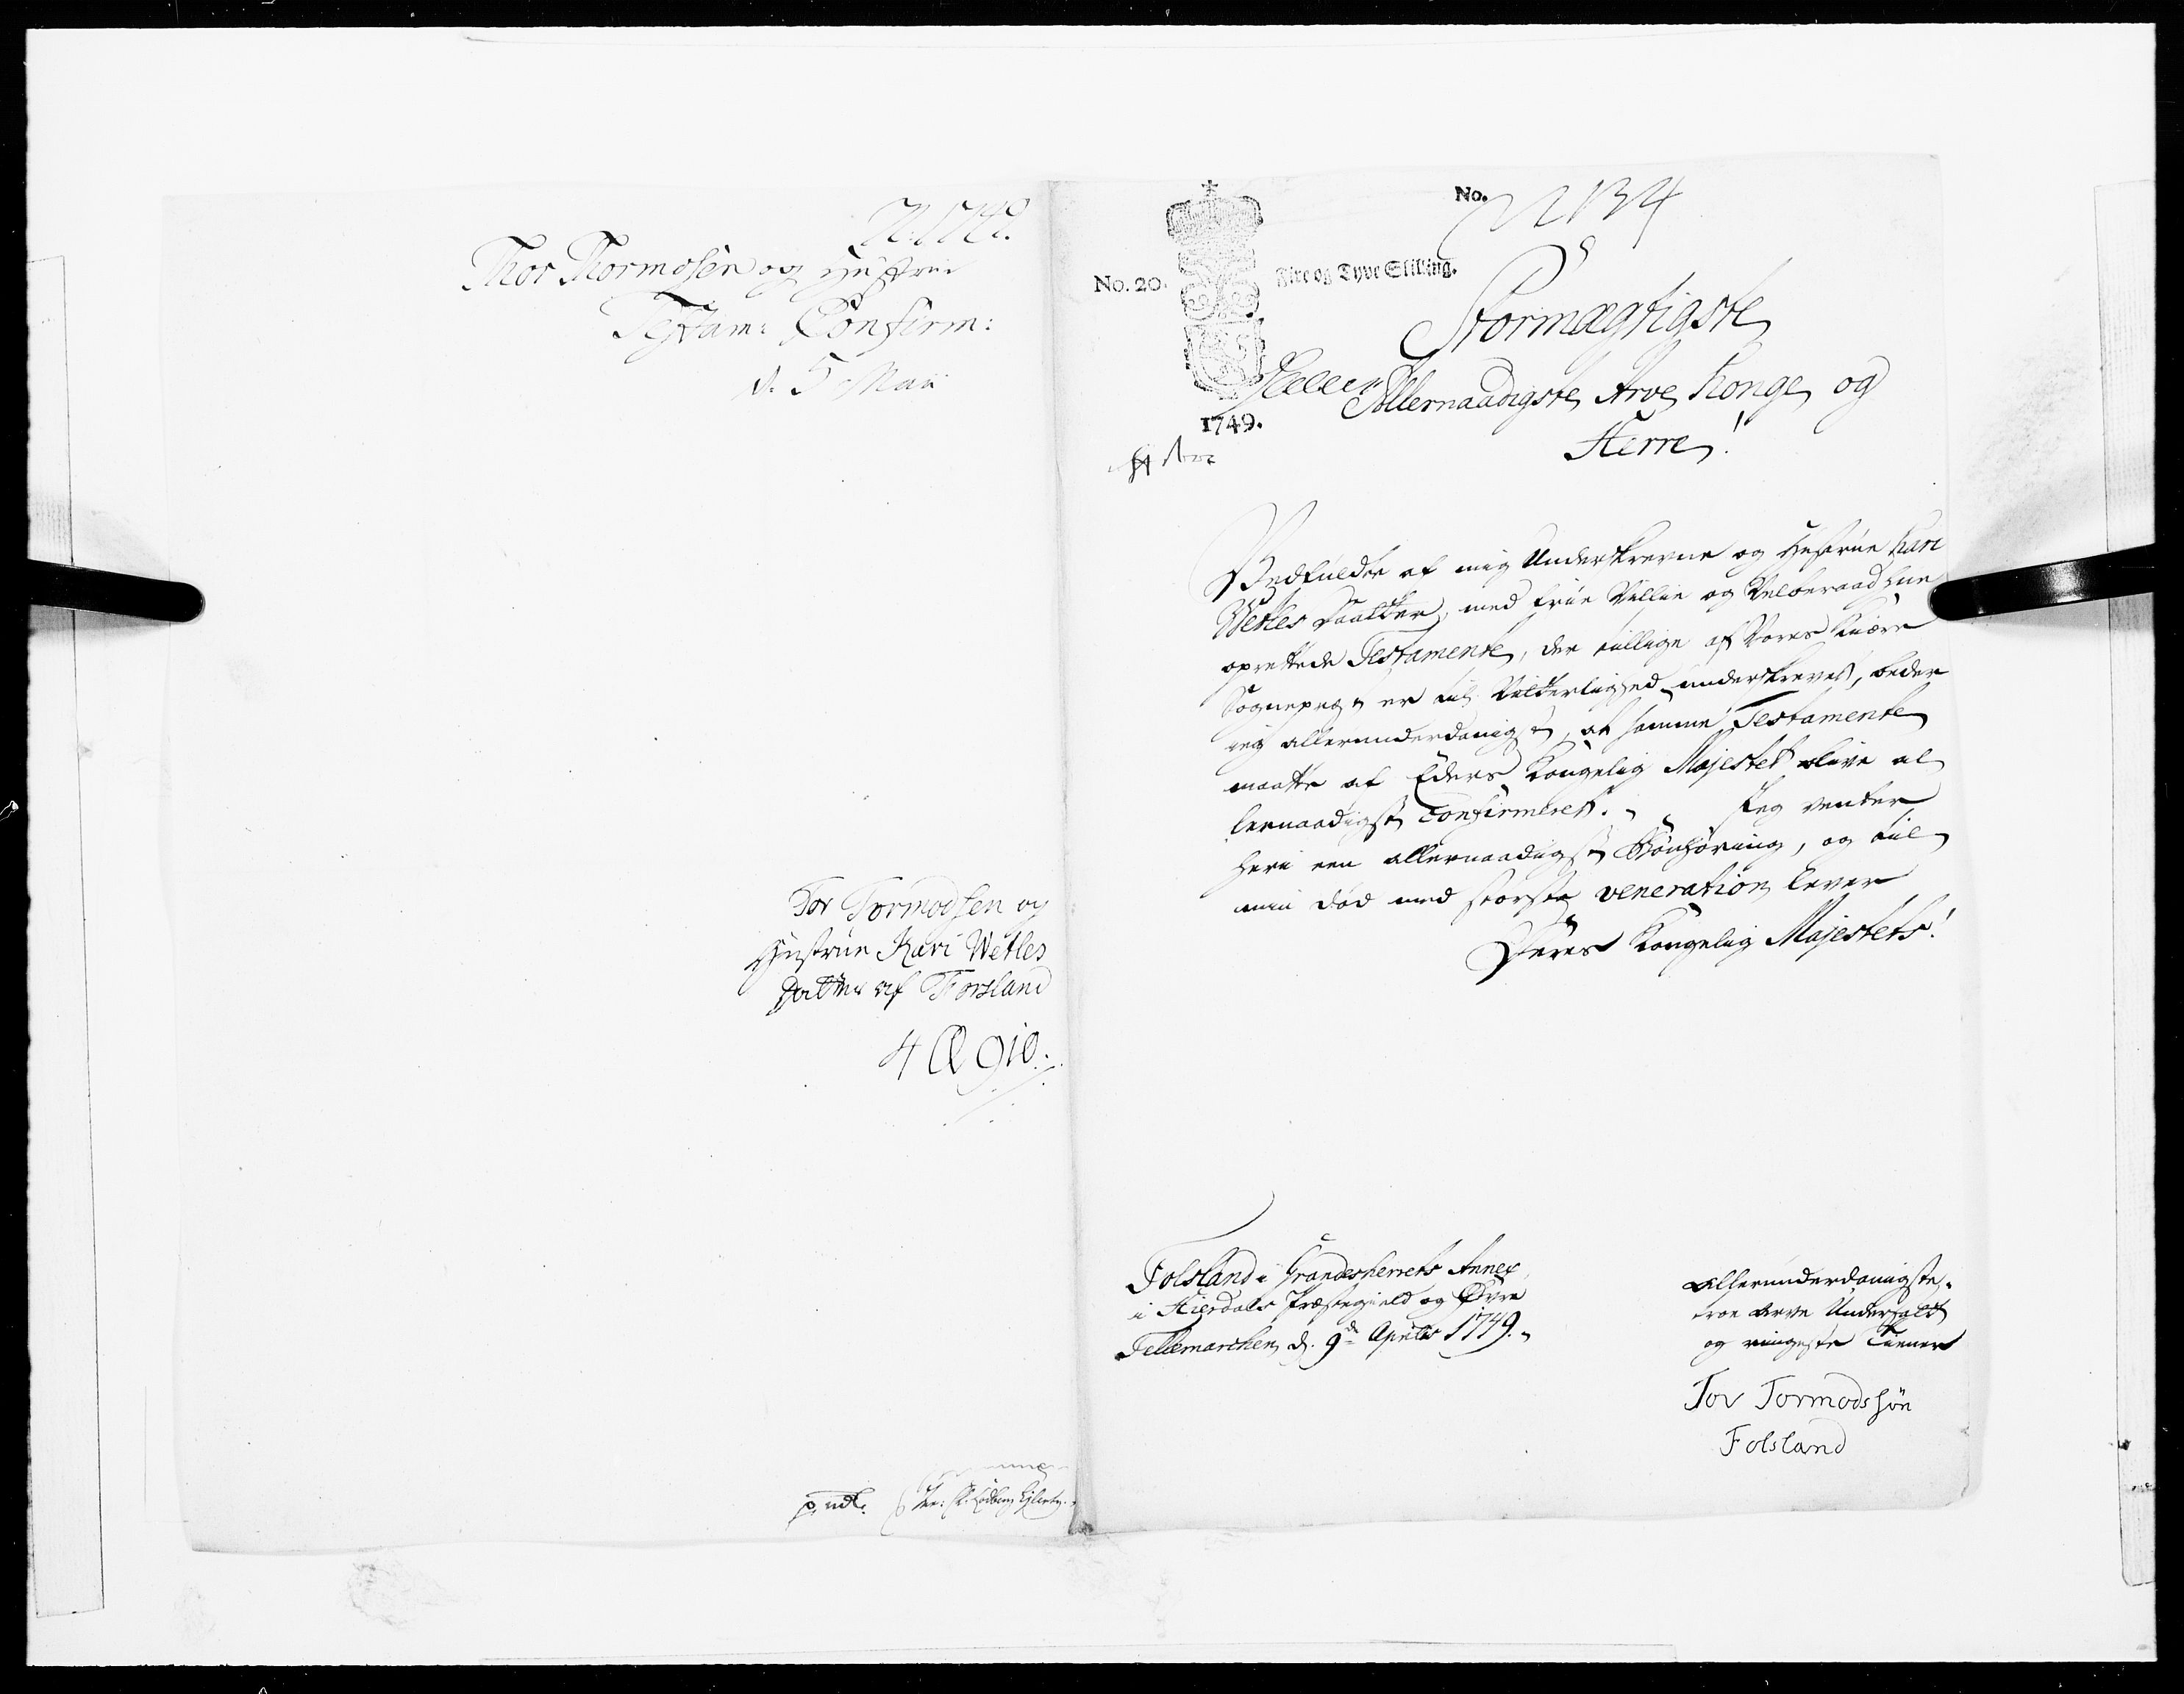 Thor Thormosen og Hustrue
Testam: Confirm:
d. 5 Maii
Tor Tormodsen og
Hustrue Kari Wetles
Datter af Forsland
4 910.
p. udk.
No. 2134
No. 20.
Fire og Tyve Skilling.
1749.
Stormægtigste
Allernaadigste Arve Konge og
Herre!
Vedfulde af mig Underskrevne og Hustrue Kari
Wetles Daatter, med frie Villie og Velberaad Hue
oprettede Testamente, der tillige af Vores Kiære
Sognepræst er til Vitterlighed underskrevet, beder
ieg allerunderdanigst, at samme Testamente
maatte af Eders Kongelig Majestet blive al
lernaadigst Confirmeret. Jeg venter
heri een allernaadigst Bønhøring, og til
min død med største veneration lever
Deres Kongelig Majestets!
Folsland i Grandesherrets Annex
i Hierdals Præstegield og Øvre
Tellemarchen d. 9de Aprilis 1749.
Allerunderdanigste
troe Arve Undersaat
og ringeste Tiener
Tor Tormodssøn
Folsland